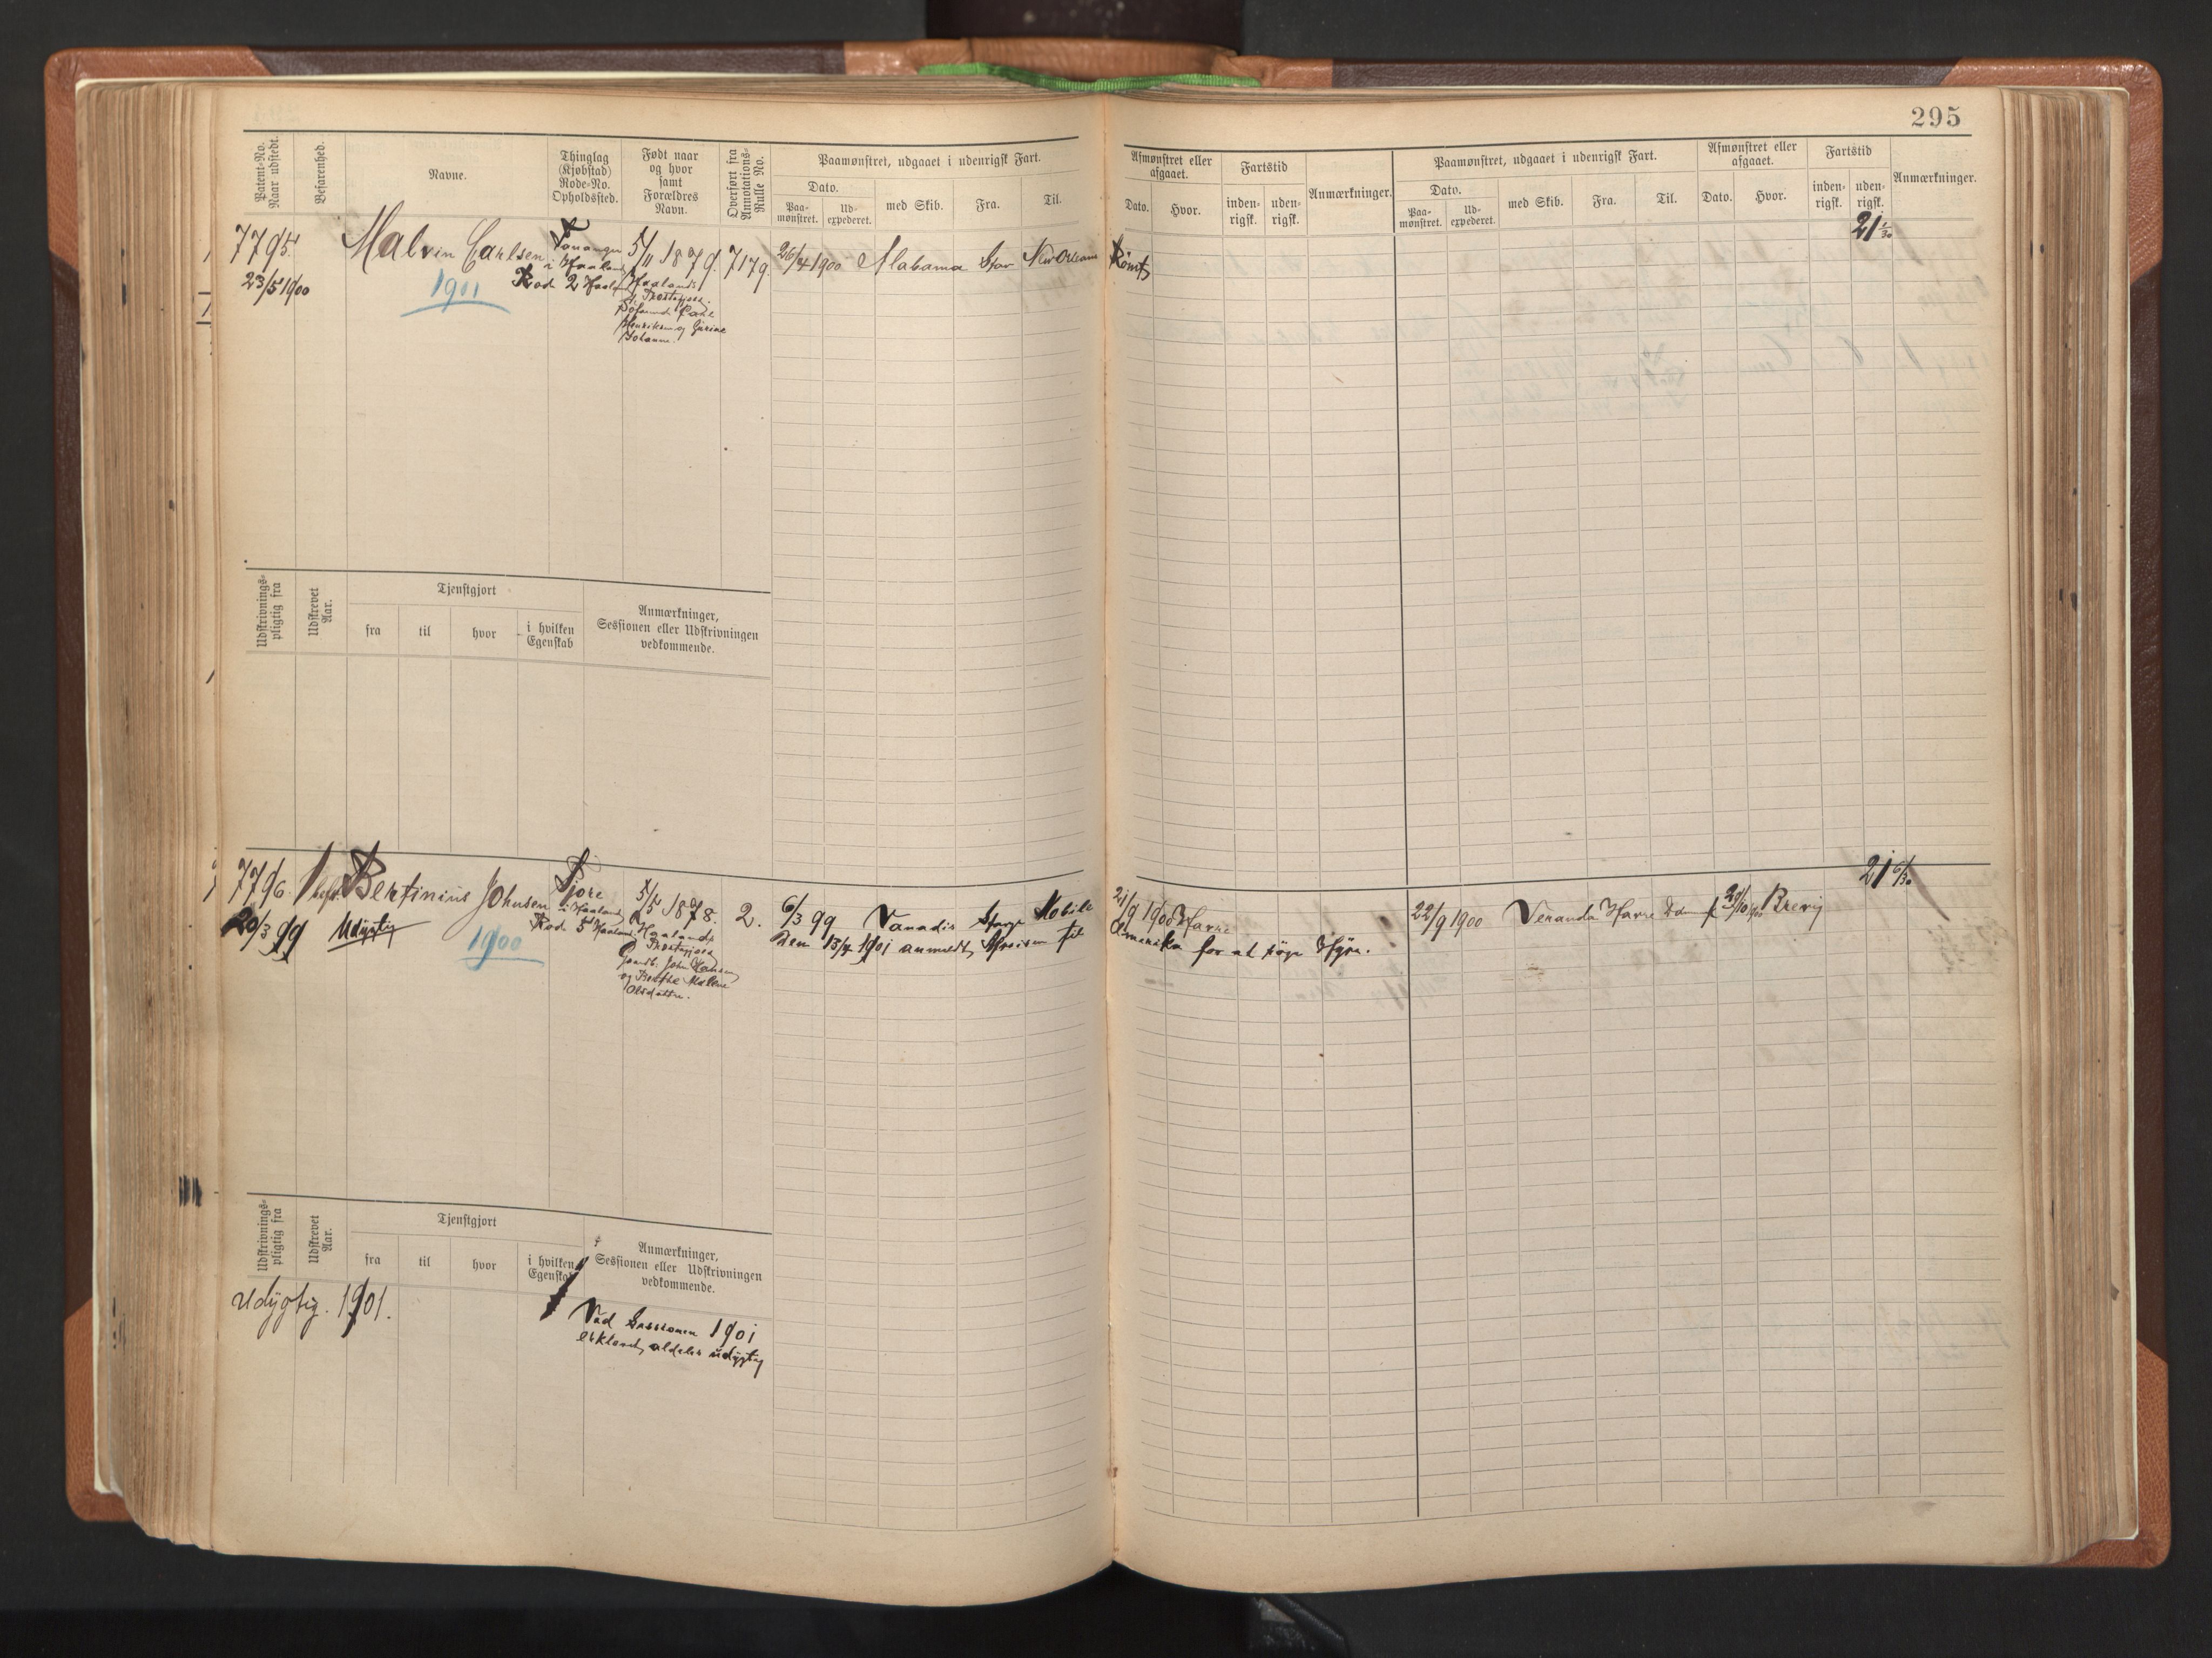 295
Patent-No.
Naar udstedt.
Befarenhed.
Navne.
Thinglag
(Kjøbstad)
Rode-No.
Opholdssted.
Født naar
og hvor
samt
Forældres
Navn.
Overført fra
Annotations-
Rulle No.
Paamønstret, udgaaet i udenrigsk Fart.
Dato.
Paa-
mønstret.
Ud-
expederet.
med Skib.
Fra.
Til.
Afmønstret eller
afgaaet.
Dato.
Hvor.
Fartstid
inden-
rigsk.
uden-
rigsk.
Anmærkninger.
Paamønstret, udgaaet i udenrigsk Fart.
Dato.
Paa-
mønstret.
Ud-
expederet.
med Skib.
Fra.
Til.
Afmønstret eller
afgaaet.
Dato.
Hvor.
Fartstid
inden-
rigsk.
uden-
rigsk.
Anmærkninger.
7795.
23/5 1900
Malvin Carlsen
1901
Tananger
i Haaland
Rod 2 Haaland
5/11 1879.
Haalands
Præstegjæld
Carl
Henriksen og
Johanne.
7179
26/4 1900 Alabama New Orleans
Rømt
21 1/30
Udskrivnings-
pligtig fra
Udskrevet
Aar.
Tjenstgjort
fra
til
hvor
i hvilken
Egenskab
Anmærkninger,
Sessionen eller Udskrivningen
vedkommende.
7796.
20/3 99
Udygtig
Bertinius Johnsen
1900
Tjore
i Haaland
Rod 5 Haaland
5/5 1878.
Haalands
Præstegjæld
John Hansen
og Berthe Malene
Olsdatter.
2.
6/3 99 Vanadis Mobile
Den 13/4 1901 anmeldt Afreisen til
21/9 1900 Havre
Amerika for at søge Hyre.
22/9 1900 Veranda Havre 20/10 1900 Brevig
21 6/30
Udskrivnings-
pligtig fra
Udskrevet
Aar.
Tjenstgjort
fra
til
hvor
i hvilken
Egenskab
Anmærkninger,
Sessionen eller Udskrivningen
vedkommende.
Udygtig. 1901.
Ved Sessionen 1901
erklæret aldeles udygtig